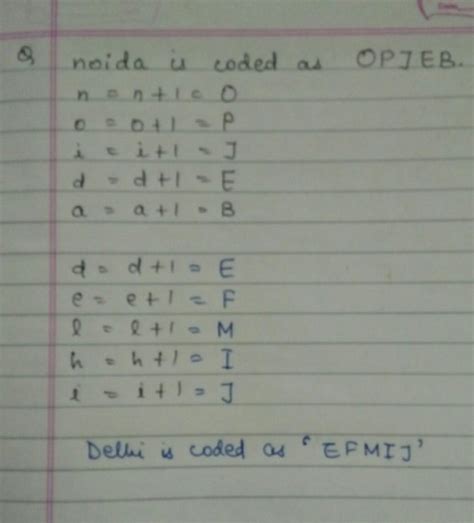 Q noida is coded as OPJEB.
n = n+1 = O
o = o+1 = P
i = i+1 = J
d = d+1 = E
a = a+1 = B
d = d+1 = E
e = e+1 = F
l = l+1 = M
h = h+1 = I
i = i+1 = J
Delhi is coded as 'EFMIJ'